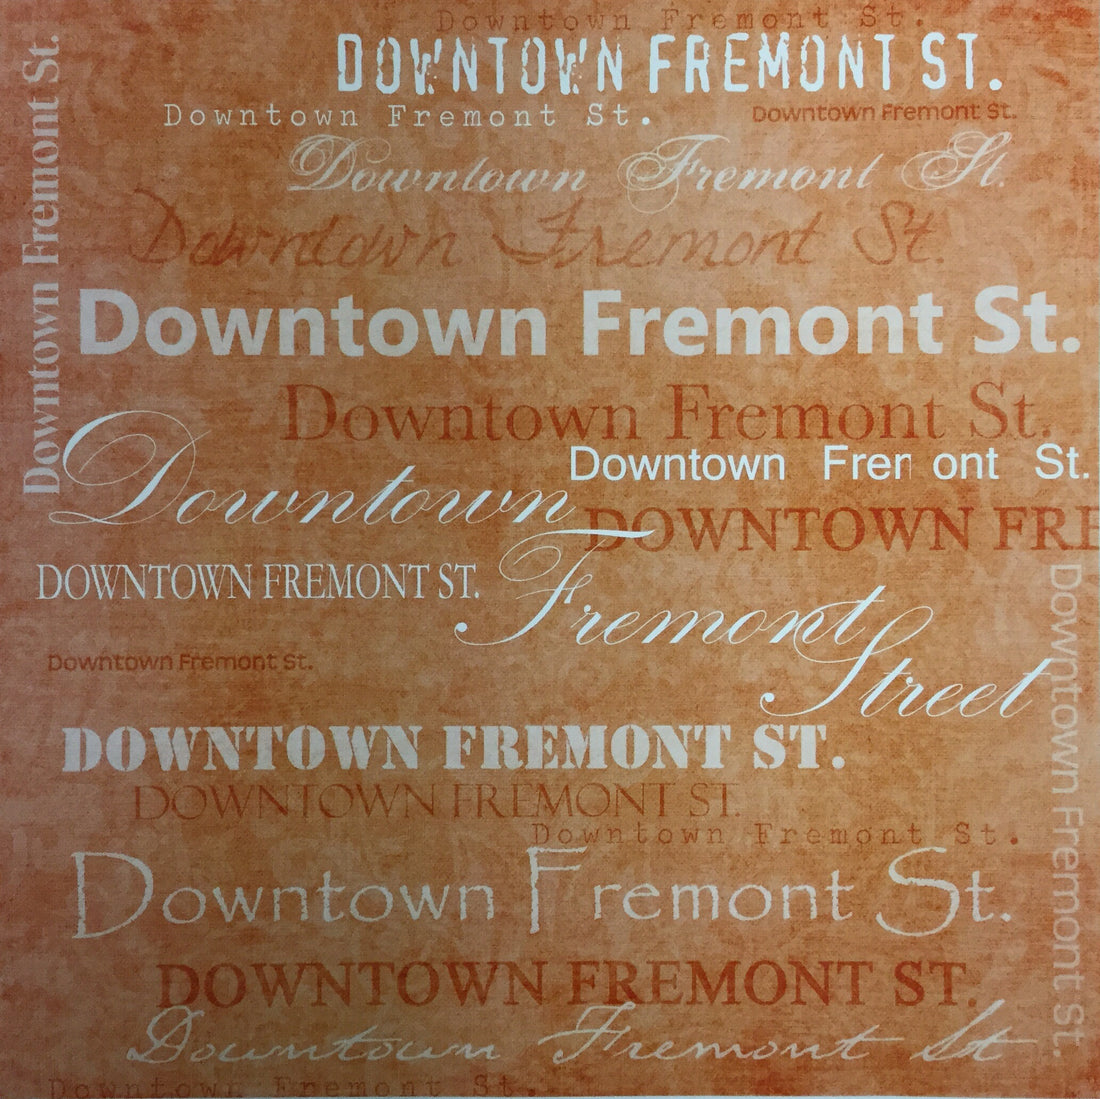 Downtown Fremont St.
DOWNTOWN FREMONT ST.
Downtown Fremont St.
Downtown Fremont St.
Downtown Fremont St.
Downtown Fremont St.
Downtown Fremont St.
Downtown Fremont St.
Downtown Fremont St.
Downtown Frer ont St.
Downtown
DOWNTOWN FRE
DOWNTOWN FREMONT ST.
Fremont
Street
Downtown Fremont St.
Downtown Fremont St.
DOWNTOWN FREMONT ST.
DOWNTOWN FREMONT ST.
Downtown Fremont St.
Downtown Fremont St.
DOWNTOWN FREMONT ST.
Downtown Fremont St
Downtown Fremont St.